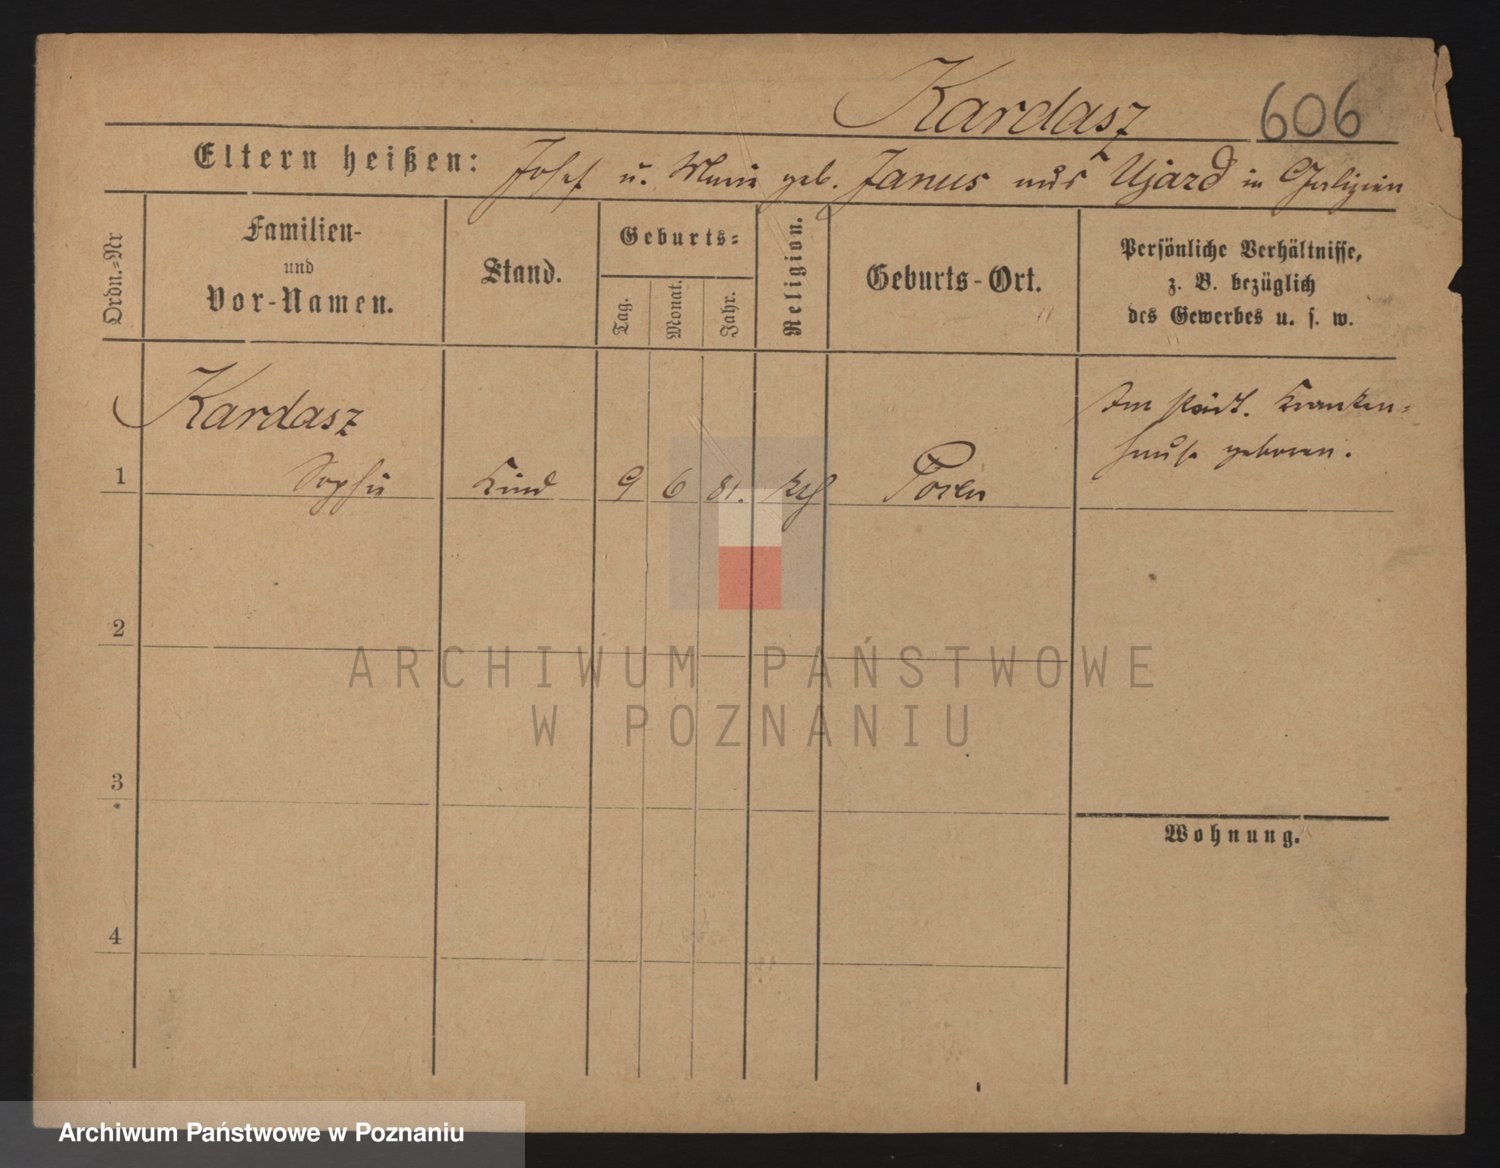 Kardasz 606
Eltern heißen: Josef u. Marie geb. Janus aus Ujazd in Galizien
Ordn.-Nr
Familien-
und
Vor-Namen.
Stand.
Geburts-
Tag.
Monat.
Jahr.
Religion.
Geburts-Ort.
Persönliche Verhältnisse,
z. B. bezüglich
des Gewerbes u. s. w.
Kardasz
1 Sophie Kind 9 6 81. kth Posen
Im städt. Kranken-
hause geboren.
2
3
4
Wohnung.
ARCHIWUM PAŃSTWOWE
W POZNANIU
Archiwum Państwowe w Poznaniu